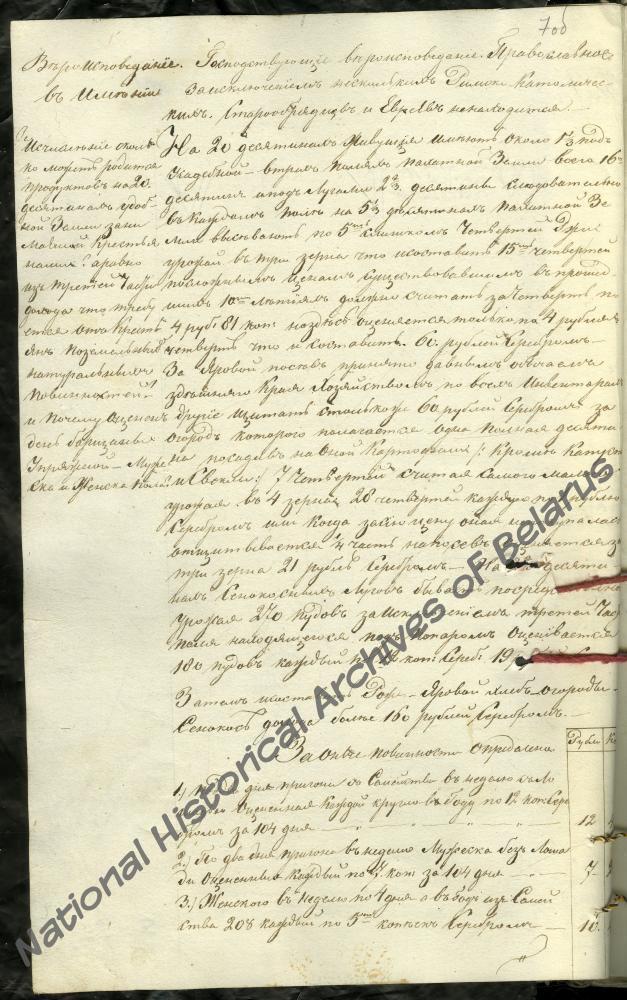 700
Вѣроисповѣданіе
въ Имѣніи
Господствующіе вѣроисповѣданіе Православное
за исключеніемъ несколькихъ Римско Католичес-
кихъ. Старообрядцевъ и Евреевъ ненаходится.
Исчисленіе сколь-
ко можетъ родится
продуктовъ на 20
десятинахъ удоб-
ной Земли зани
маемой Крестья
нами? а равно
изъ третей части
дохода что треб
ется отъ Крестъ
янъ поземельныхъ
натуральныхъ
повинностей?
и почему оценен
день
Упряжной Мужес
ка и Женска пола
На 20 десятинахъ живущія имѣютъ около 1/3 подъ
усадьбой втрехъ поляхъ пахатной Земли всего 16
десятинъ а подъ Лугами 2 2/3 десятины Следовательно
въ каждомъ полѣ на 5 1/3 десятинахъ пахатной Зе
мли высеваютъ по 5 слишкомъ Четвертей Ржи
урожай въ три зерна что и составитъ 15 четвертей
посложнымъ ценамъ Существовавшимъ въ прошед
шихъ 10 летіяхъ должно считать за Четверть по
4 руб 81 коп. но здѣсь оценяется только по 4 рубля
четверть что и составитъ 60 рублей Серебромъ
За Яровой посевъ принято давнымъ обычаемъ
здѣшняго Края Хозяйствомъ по всемъ Инвентарамъ
другіе щитать столько же 60 рублей Серебромъ за
огородъ котораго полагается одна полная десяти
на посадивъ на оной Картофель /: Кроме Капусты
и Свеклы :/ 7 Четвертей считая Самого малаго
урожая въ 4 зерна 28 четвертей каждую по рублю
Серебромъ
отщитывается 4 часть на посевъ
три зерна 21 рубль Серебромъ
нахъ Сенокосныхъ Луговъ бываетъ
урожая 270 пудовъ за исключеніемъ третей Час
поля находящегося подъ Паромъ Оценивается
180 пудовъ каждый
Затемъ Рожь Яровой хлебъ огороды
Сенокосъ дохода более 160 рублей Серебромъ.
За оные повинности определена
Рубли
Ко
1.)
дня пригона съ Семейства въ неделю съ
Оцененная Каждой кругло въ Году по 12 коп Сере
бромъ за 104 дня
12
2.) По два дня пригона въ неделю Мужеска безъ Лоша
ди Оцененные каждый по 7 коп за 104 дня
7
3.) Женского въ неделю по 4 дня а въ Годъ изъ Семей
ства 208 каждый по 5 копѣекъ Серебромъ
10
National Historical Archives of Belarus